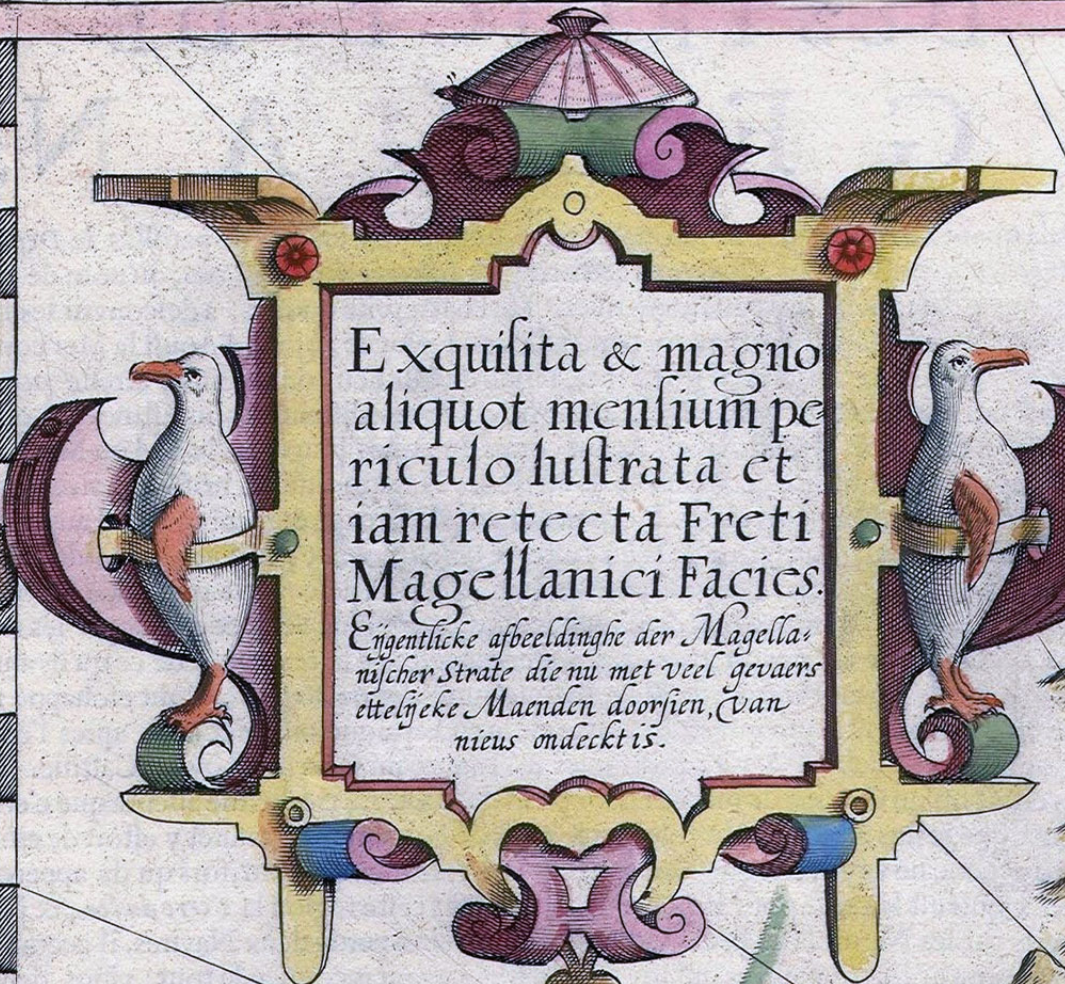 Exquiſita & magno
aliquot menſium pe
riculo luſtrata et
iam retecta Freti
Magellanici Facies.
Eijgentlicke afbeeldinghe der Magella⸗
niſcher Strate die nu met veel gevaers
ettelijcke Maenden doorſien, van
nieus ondeckt is.